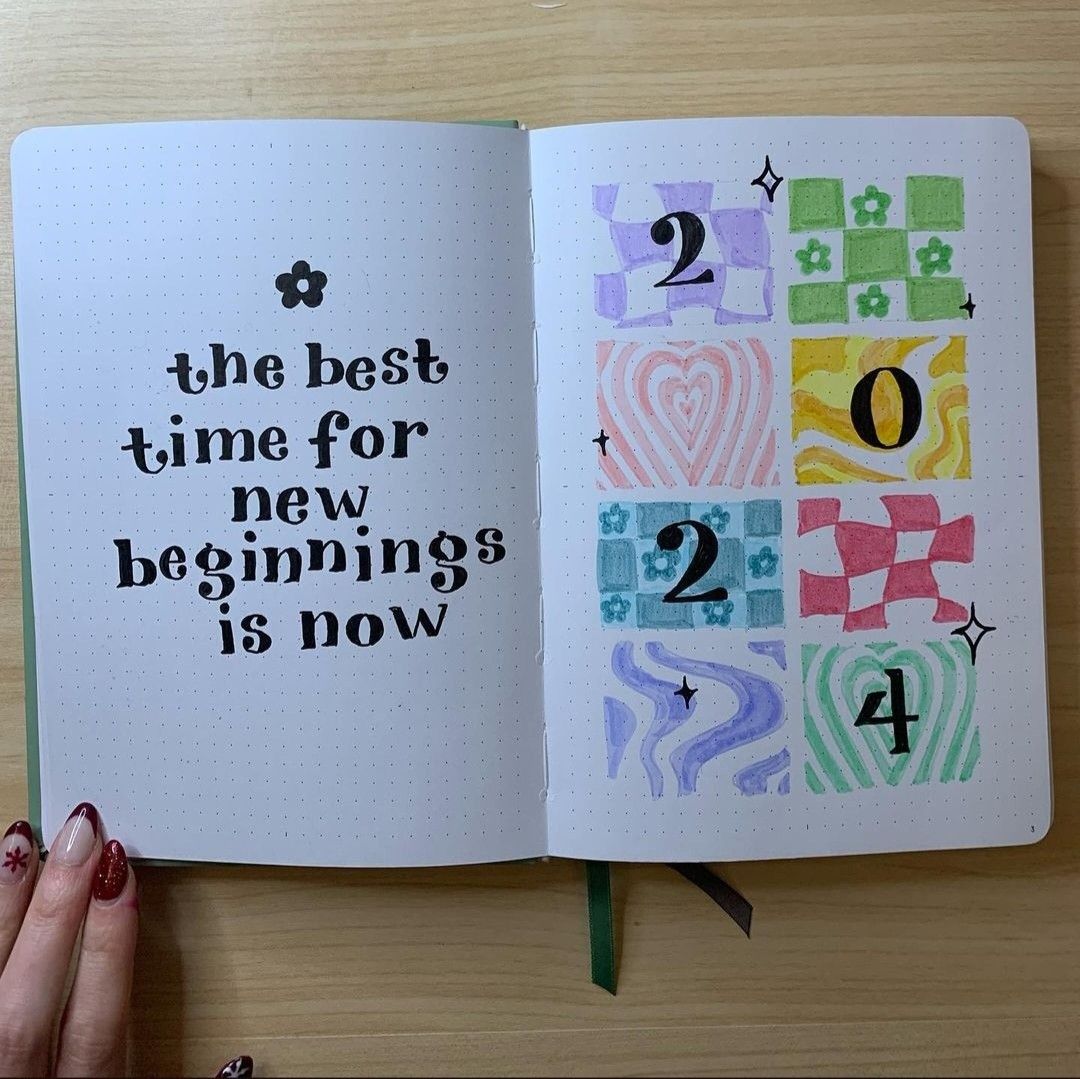 the best
time for
new
beginnings
is now
2
0
2
4
3